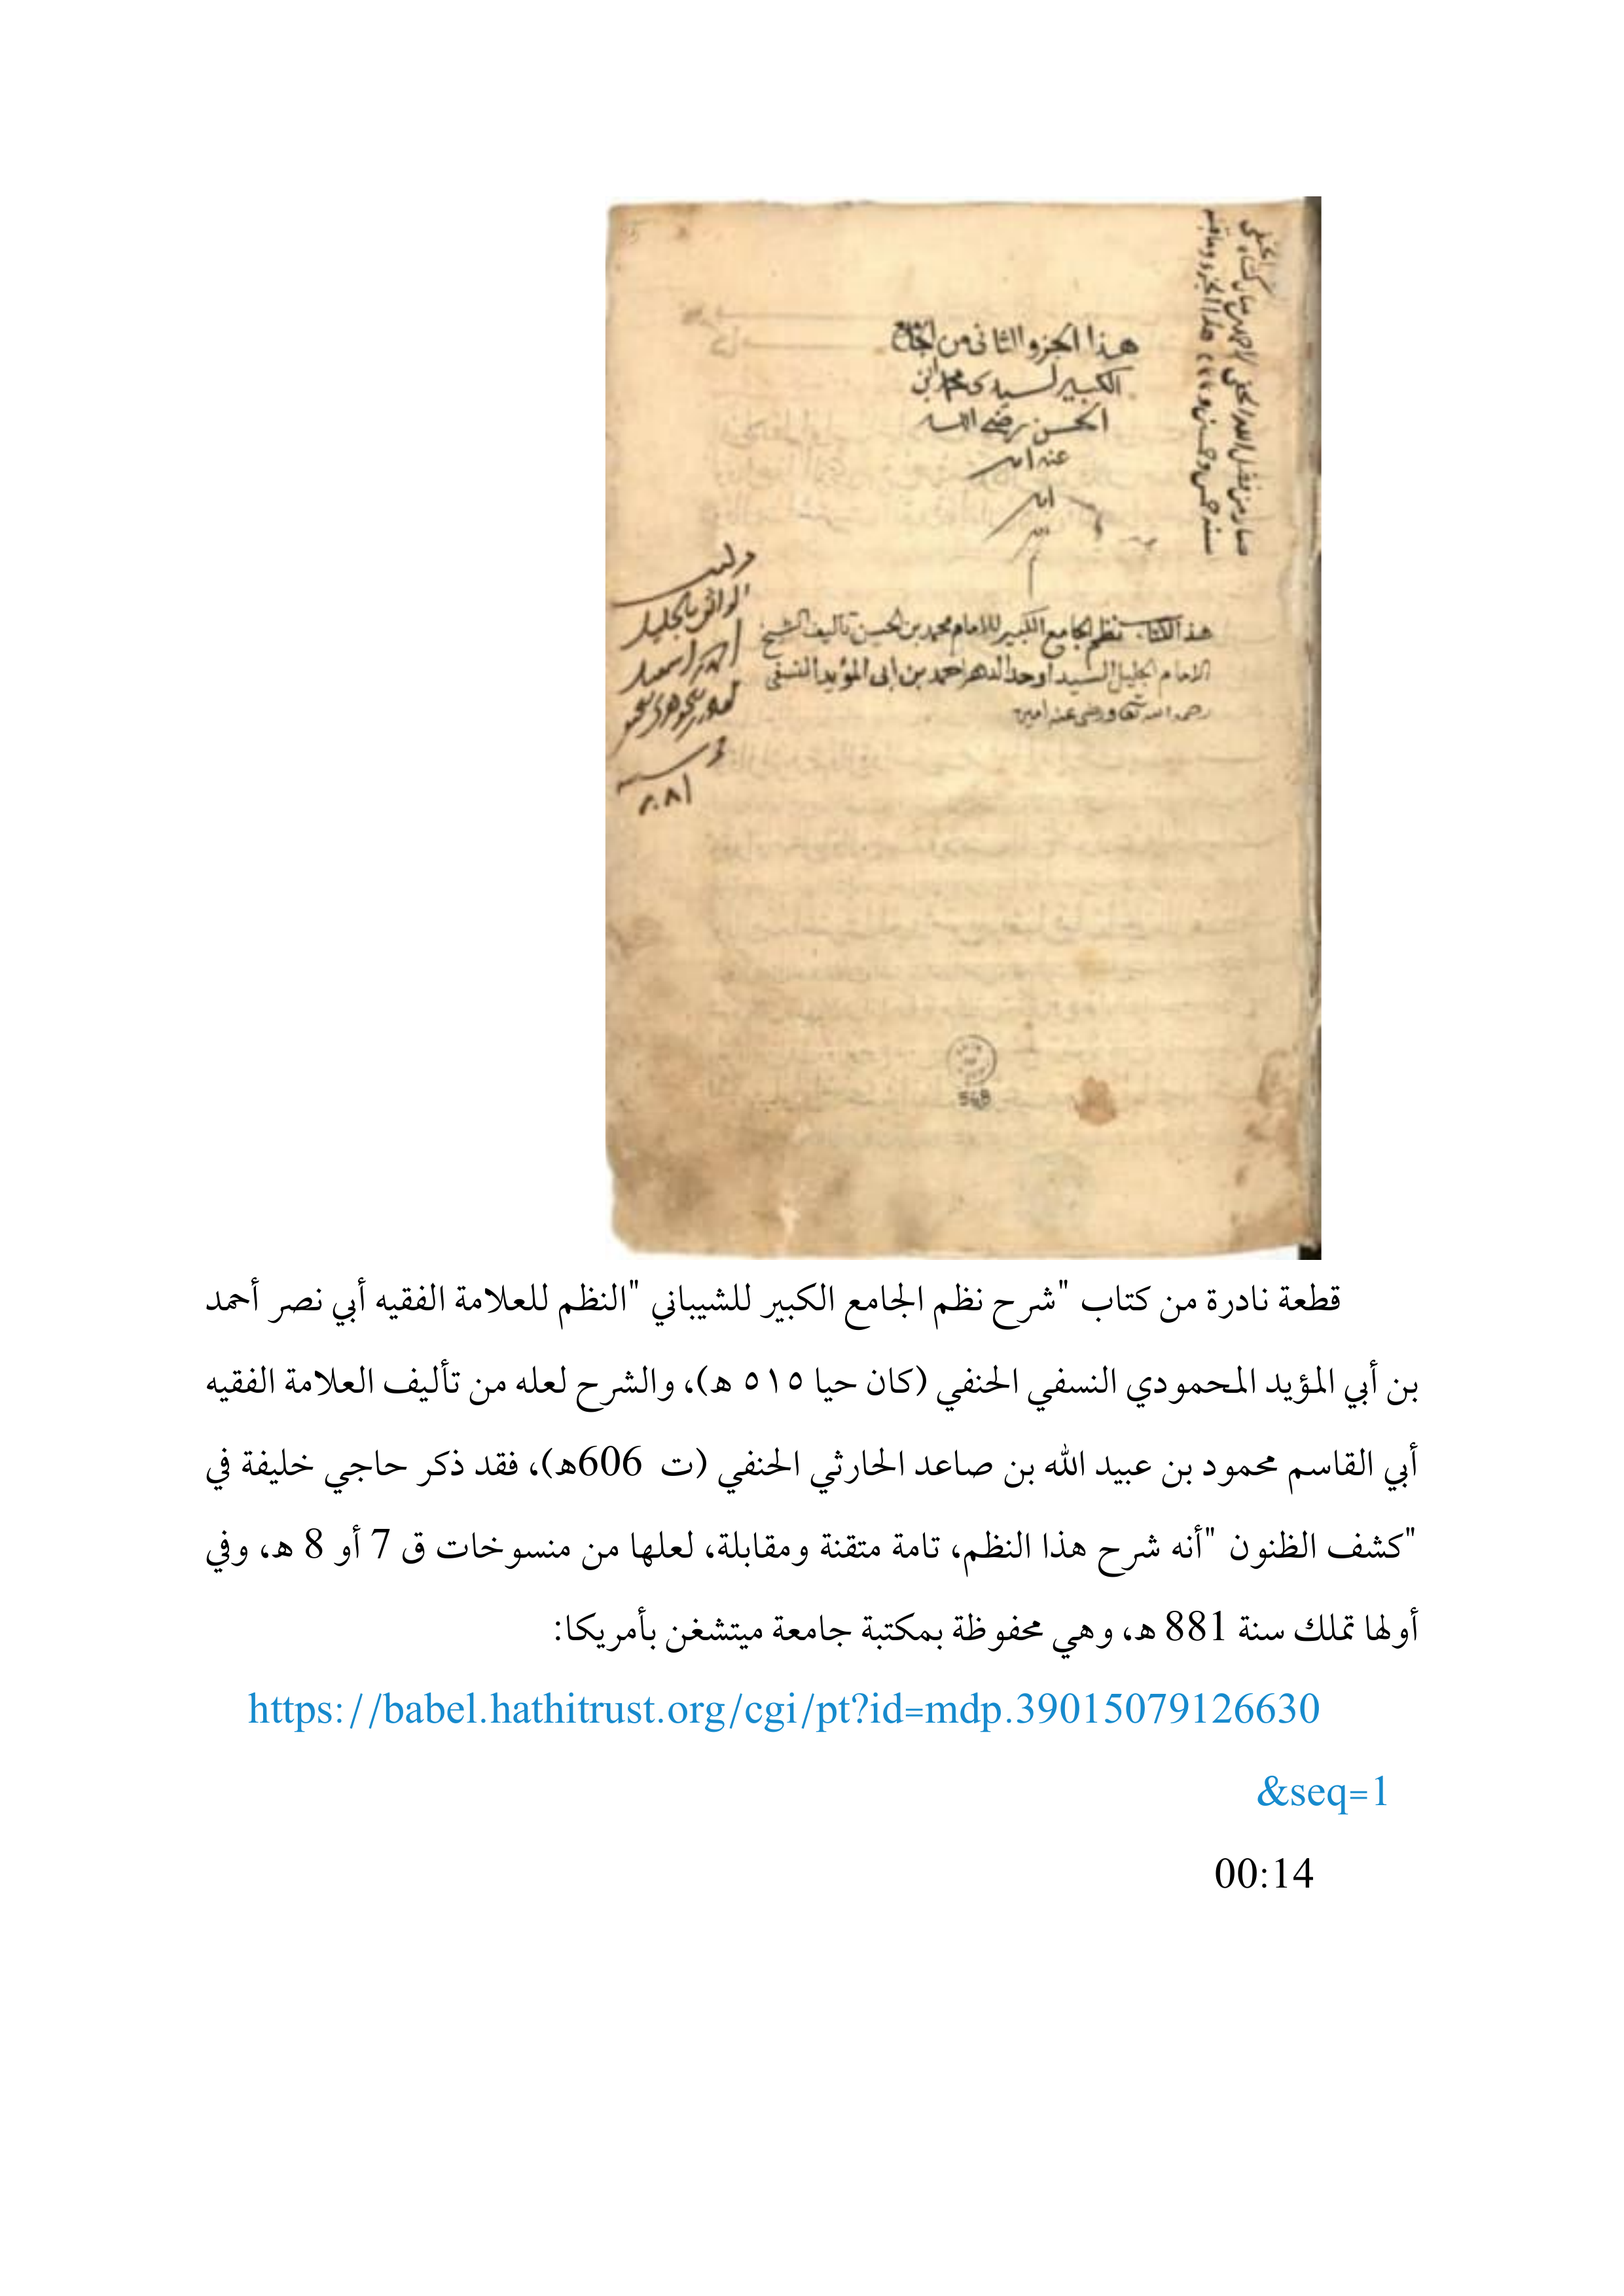 هذا الجزو الثاني من الجامع
الكبير لسيدي محمد ابن
الحسن رضي الله
عنه امين
امين
هذا الكتاب نظم الجامع الكبير للامام محمد بن الحسن تاليف الشيخ
الامام الجليل السيد اوحد الدهر احمد بن ابى المؤيد النسفى
رحمه الله تعا ورضى عنه امين
548
قطعة نادرة من كتاب "شرح نظم الجامع الكبير للشيباني "النظم للعلامة الفقيه أبي نصر أحمد
بن أبي المؤيد المحمودي النسفي الحنفي (كان حيا ٥١٥ هـ)، والشرح لعله من تأليف العلامة الفقيه
أبي القاسم محمود بن عبيد الله بن صاعد الحارثي الحنفي (ت 606هـ)، فقد ذكر حاجي خليفة في
"كشف الظنون "أنه شرح هذا النظم، تامة متقنة ومقابلة، لعلها من منسوخات ق 7 أو 8 هـ، وفي
أولها تملك سنة 881 هـ، وهي محفوظة بمكتبة جامعة ميتشغن بأمريكا:
https://babel.hathitrust.org/cgi/pt?id=mdp.39015079126630
&seq=1
00:14